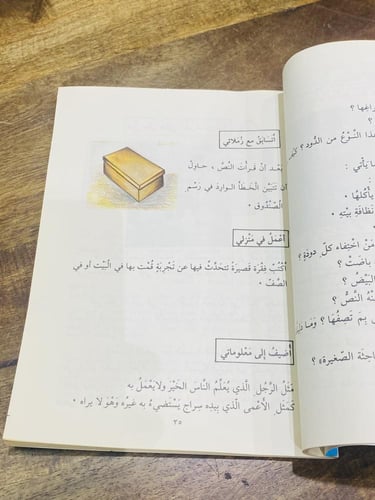 أتسابق مع زملائي
بَعْد أن قَرأتَ النّصَّ ، حاول
أن تتبيّن الخطأ الوارد في رسم
الصّندوق .
أعمل في منزلي
أكتُبُ فِقرة قصيرَة تتحدَّثُ فيها عن تَجربةٍ قُمْتَ بها في البَيْت أو في
الصّفّ .
أضيف إلى معلوماتي
مَثَلُ الرَّجُل الَّذي يُعلِّمُ النّاسَ الخَيْرَ ولايَعْمَلُ به
كَمثَل الأعْمى الَّذي بيدِه سِراج يَسْتَضيءُ به غيْرُه وَهْوَ لا يراه .
٣٥
راغِها ؟
؟
هذا النَّوْعُ من الدّود ؟ كيف
ما يأتي :
يأْكُلُها .
نظافة بيْتِه .
مَنْ اخْتِفاء كلِّ دودةٍ ؟
باضَتْ ؟
البَيْضُ ؟
النَّصُّ ؟
بِمَ تَصِفُها ؟
الصّغيرة» ؟